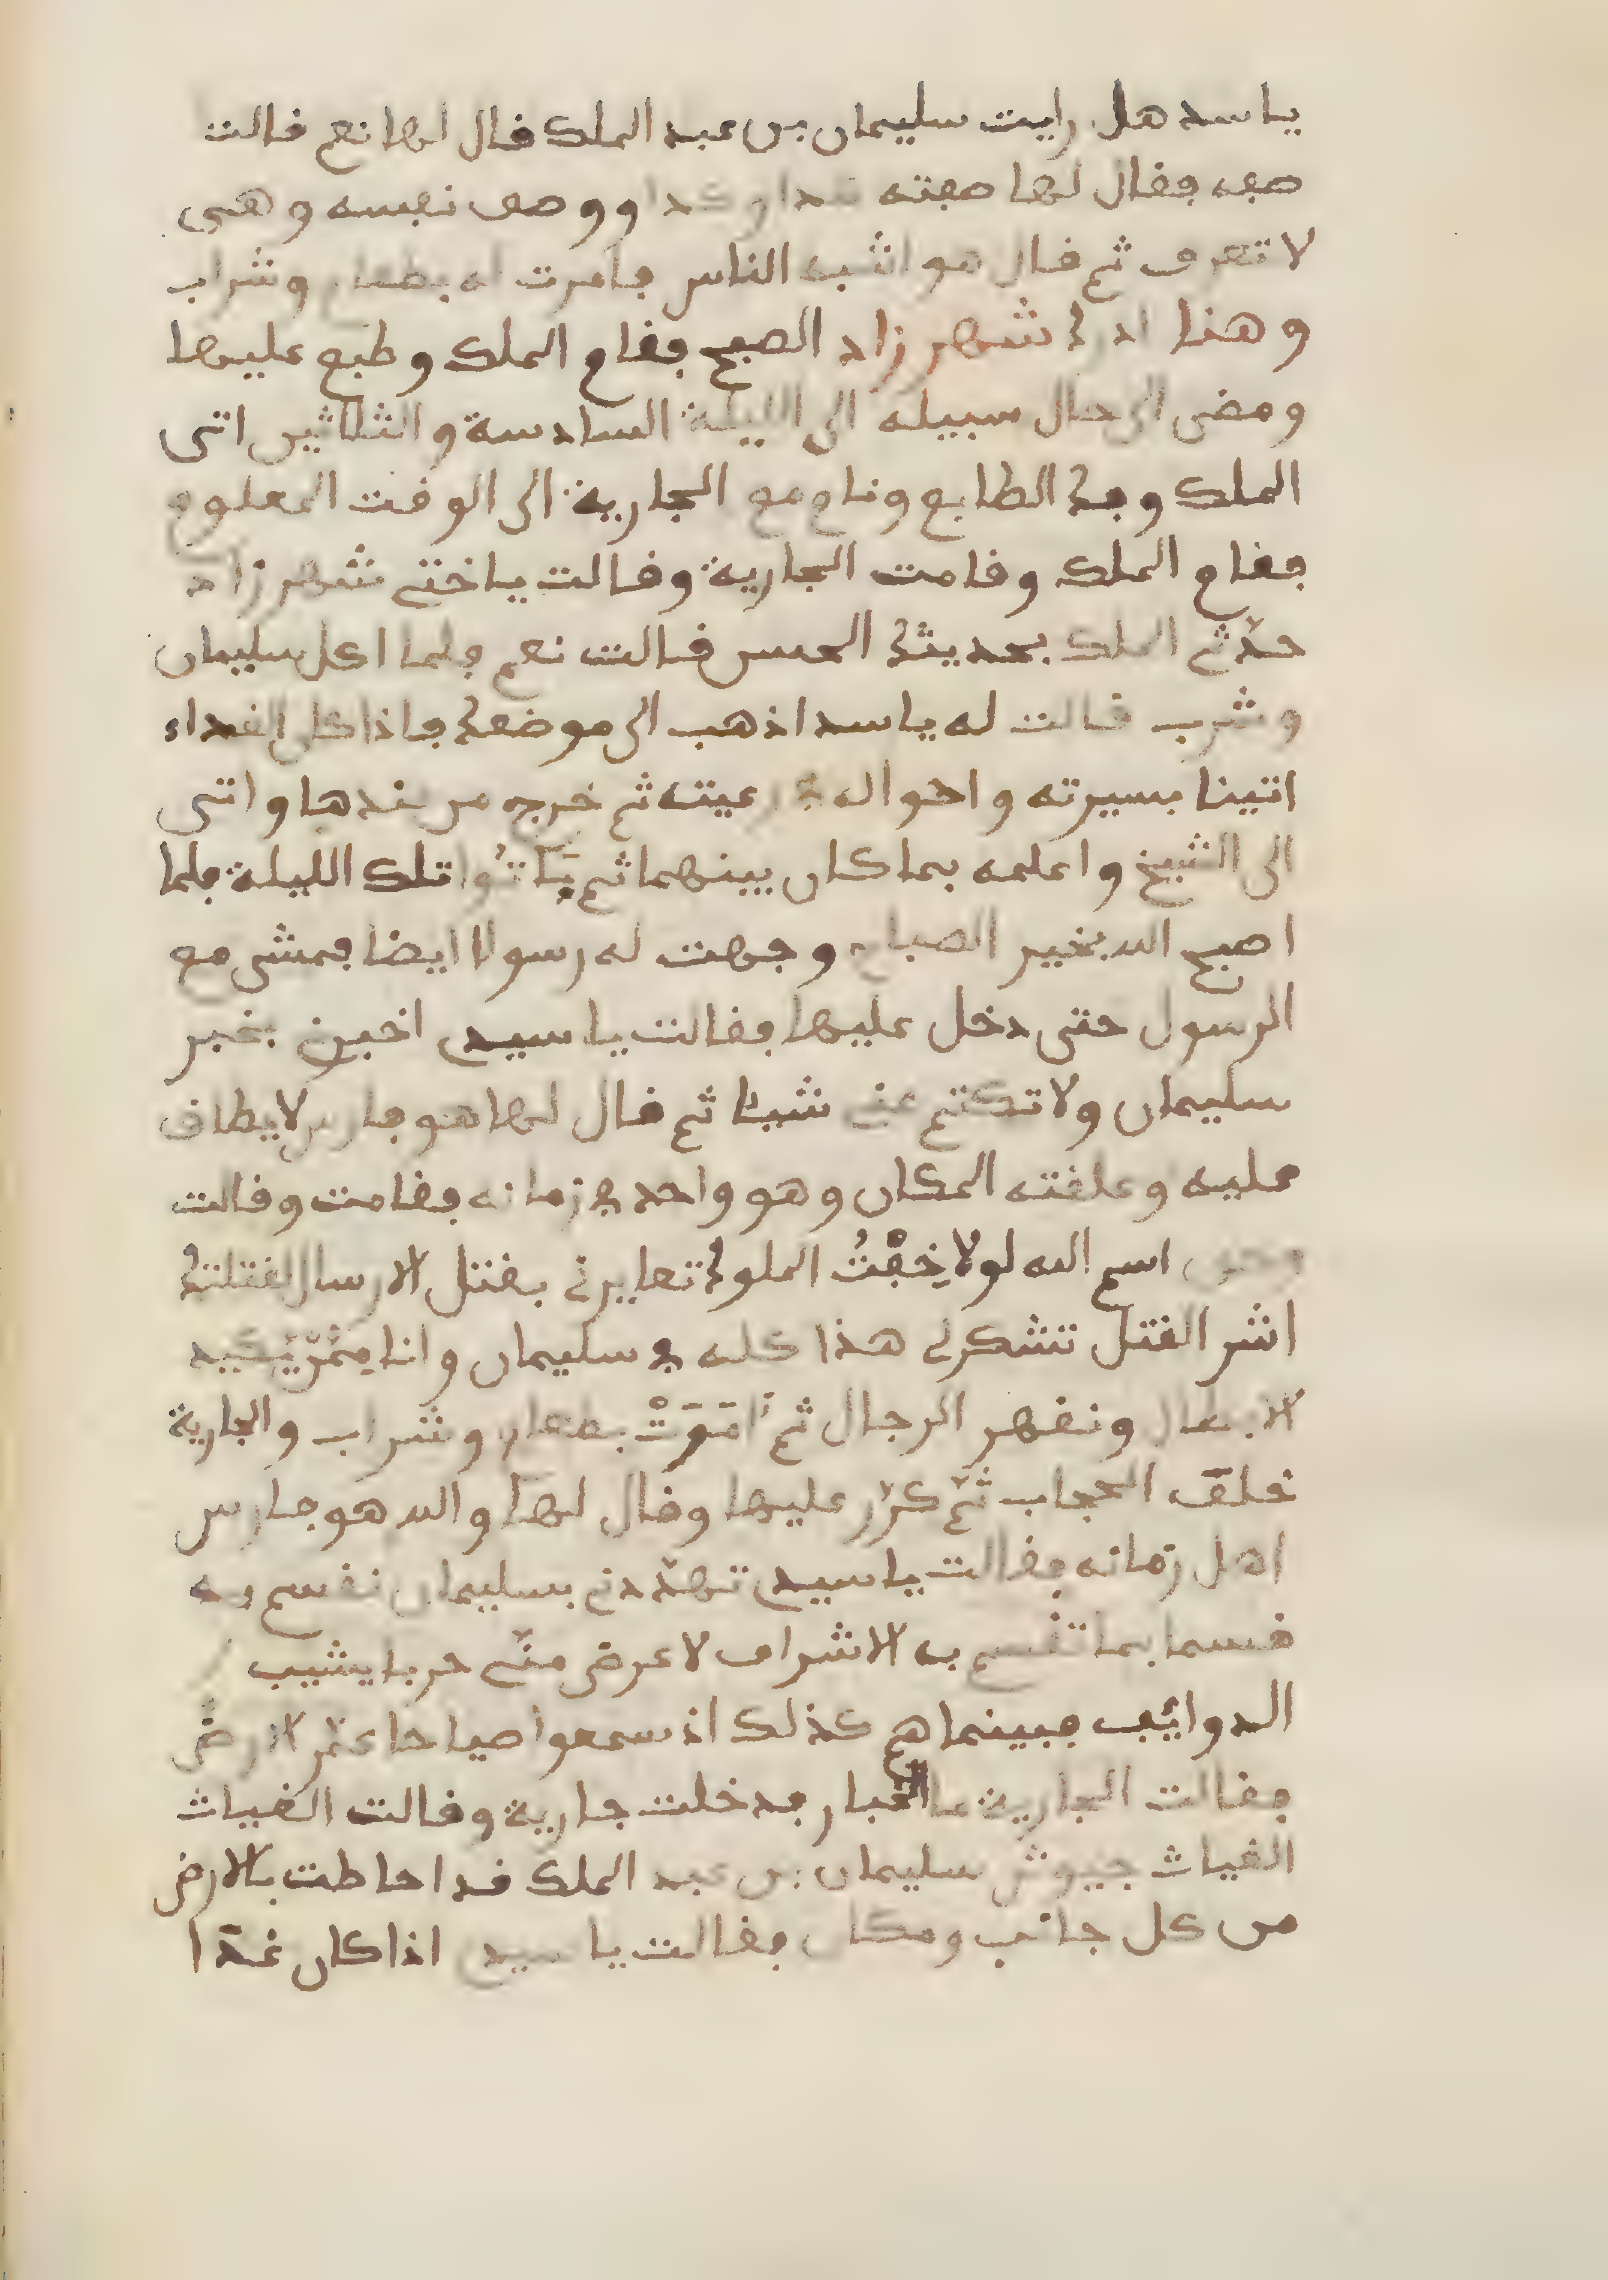 يا سيد هل رايت سليمان بن عبد الملك قال لها نعم قالت
صفه فقال لها صفته كذا وكذا ووصف نفسه وهى
لا تعرف ثم قال هو اشبه الناس فامرت له بطعام وشراب
وهنا ادرك شهرزاد الصبح فقام الملك وطبع عليها
ومضى الى حال سبيله الى الليلة السادسة والثلاثين اتى
الملك وفك الطابع ونام مع الجارية الى الوقت المعلوم
فقام الملك وقامت الجارية وقالت ياختي شهرزاد
حدّثي الملك بحديثك الحسن قالت نعم فلما اكل سليمان
وشرب قالت له يا سيد اذهب الى موضعك فاذا كل الغداء
اتينا بسيرته واحواله في رعيته ثم خرج من عندها واتى
الى الشيخ واعلمه بما كان بينهما ثم بَاتُوا تلك الليلة فلما
اصبح الله بخير الصباح وجهت له رسولا ايضا فمشى مع
الرسول حتى دخل عليها فقالت يا سيدي اخبرني بخبر
سليمان ولا تكتم عني شيئا ثم قال لها هو فارس لا يطاق
عليه وعلقته المكان وهو واحد في زمانه فقامت وقالت
وحق اسم الله لولا خِفْتُ الملوك تعايرني بقتل الارسال لقتلتك
اشر القتل تشكر لي هذا كله في سليمان وانا مِمَّنْ يَكيد
الابطال ونقهر الرجال ثم اَمَرَتْ بطعام وشراب والجارية
خلف الحجاب ثمّ كرّر عليها وقال لها والله هو فارس
اهل زمانه فقالت يا سيدي تهدّدني بسليمان نقسم به
قسما بما تقسم به الاشراف لا عرض منّي حربا يشيب
الدوائب فبينما هم كذلك اذ سمعوا صياحا عمّر الارض
فقالت الجارية ما الخبار فدخلت جارية وقالت الغياث
الغياث جيوش سليمان بن عبد الملك قد احاطت بالارض
من كل جانب ومكان فقالت يا سيدي اذا كان غدًا